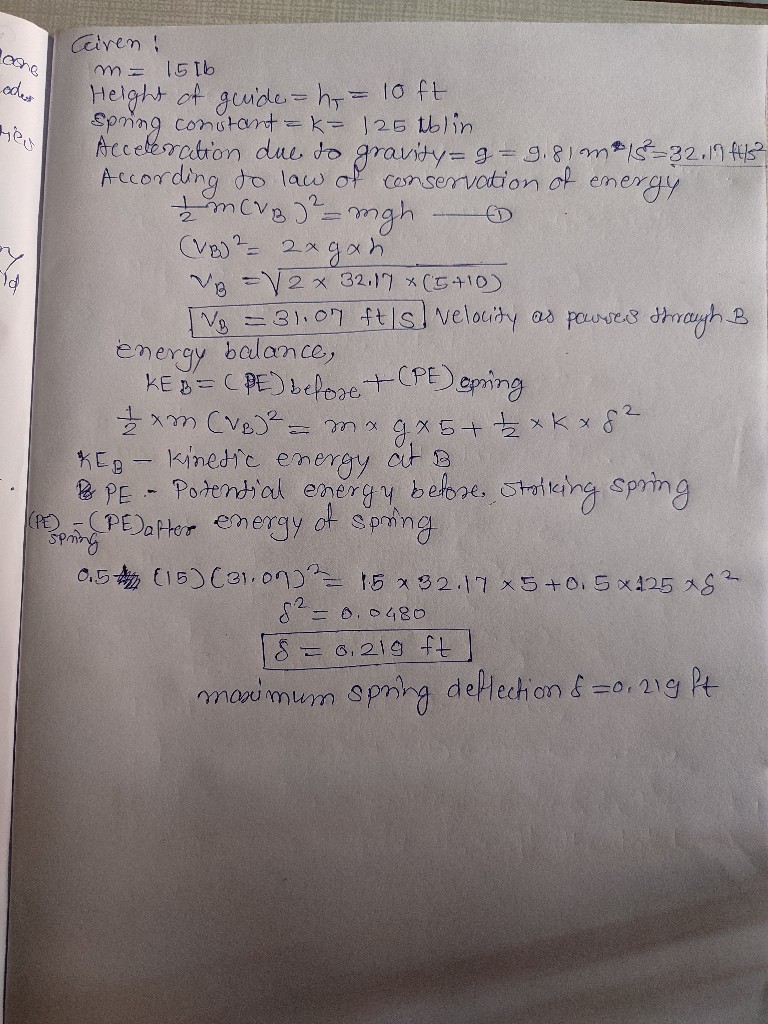 Given :
m = 15 Ib
Height of guide = hT = 10 ft
Spring constant = K = 125 lb/in
Acceleration due to gravity = g = 9.81 m/s² = 32.17 ft/s²
According to law of conservation of energy
1/2 m(VB)² = mgh — ①
(VB)² = 2 × g × h
VB = √2 × 32.17 × (5+10)
VB = 31.07 ft/s Velocity as passes through B
energy balance,
KEB = (PE)before + (PE)spring
1/2 × m (VB)² = m × g × 5 + 1/2 × K × δ²
KEB – Kinetic energy at B
PE - Potential energy before striking spring
(PE)spring – (PE)after energy of spring
0.5 (15) (31.07)² = 15 × 32.17 × 5 + 0.5 × 125 × δ²
δ² = 0.0480
δ = 0.219 ft
maximum spring deflection δ = 0.219 ft